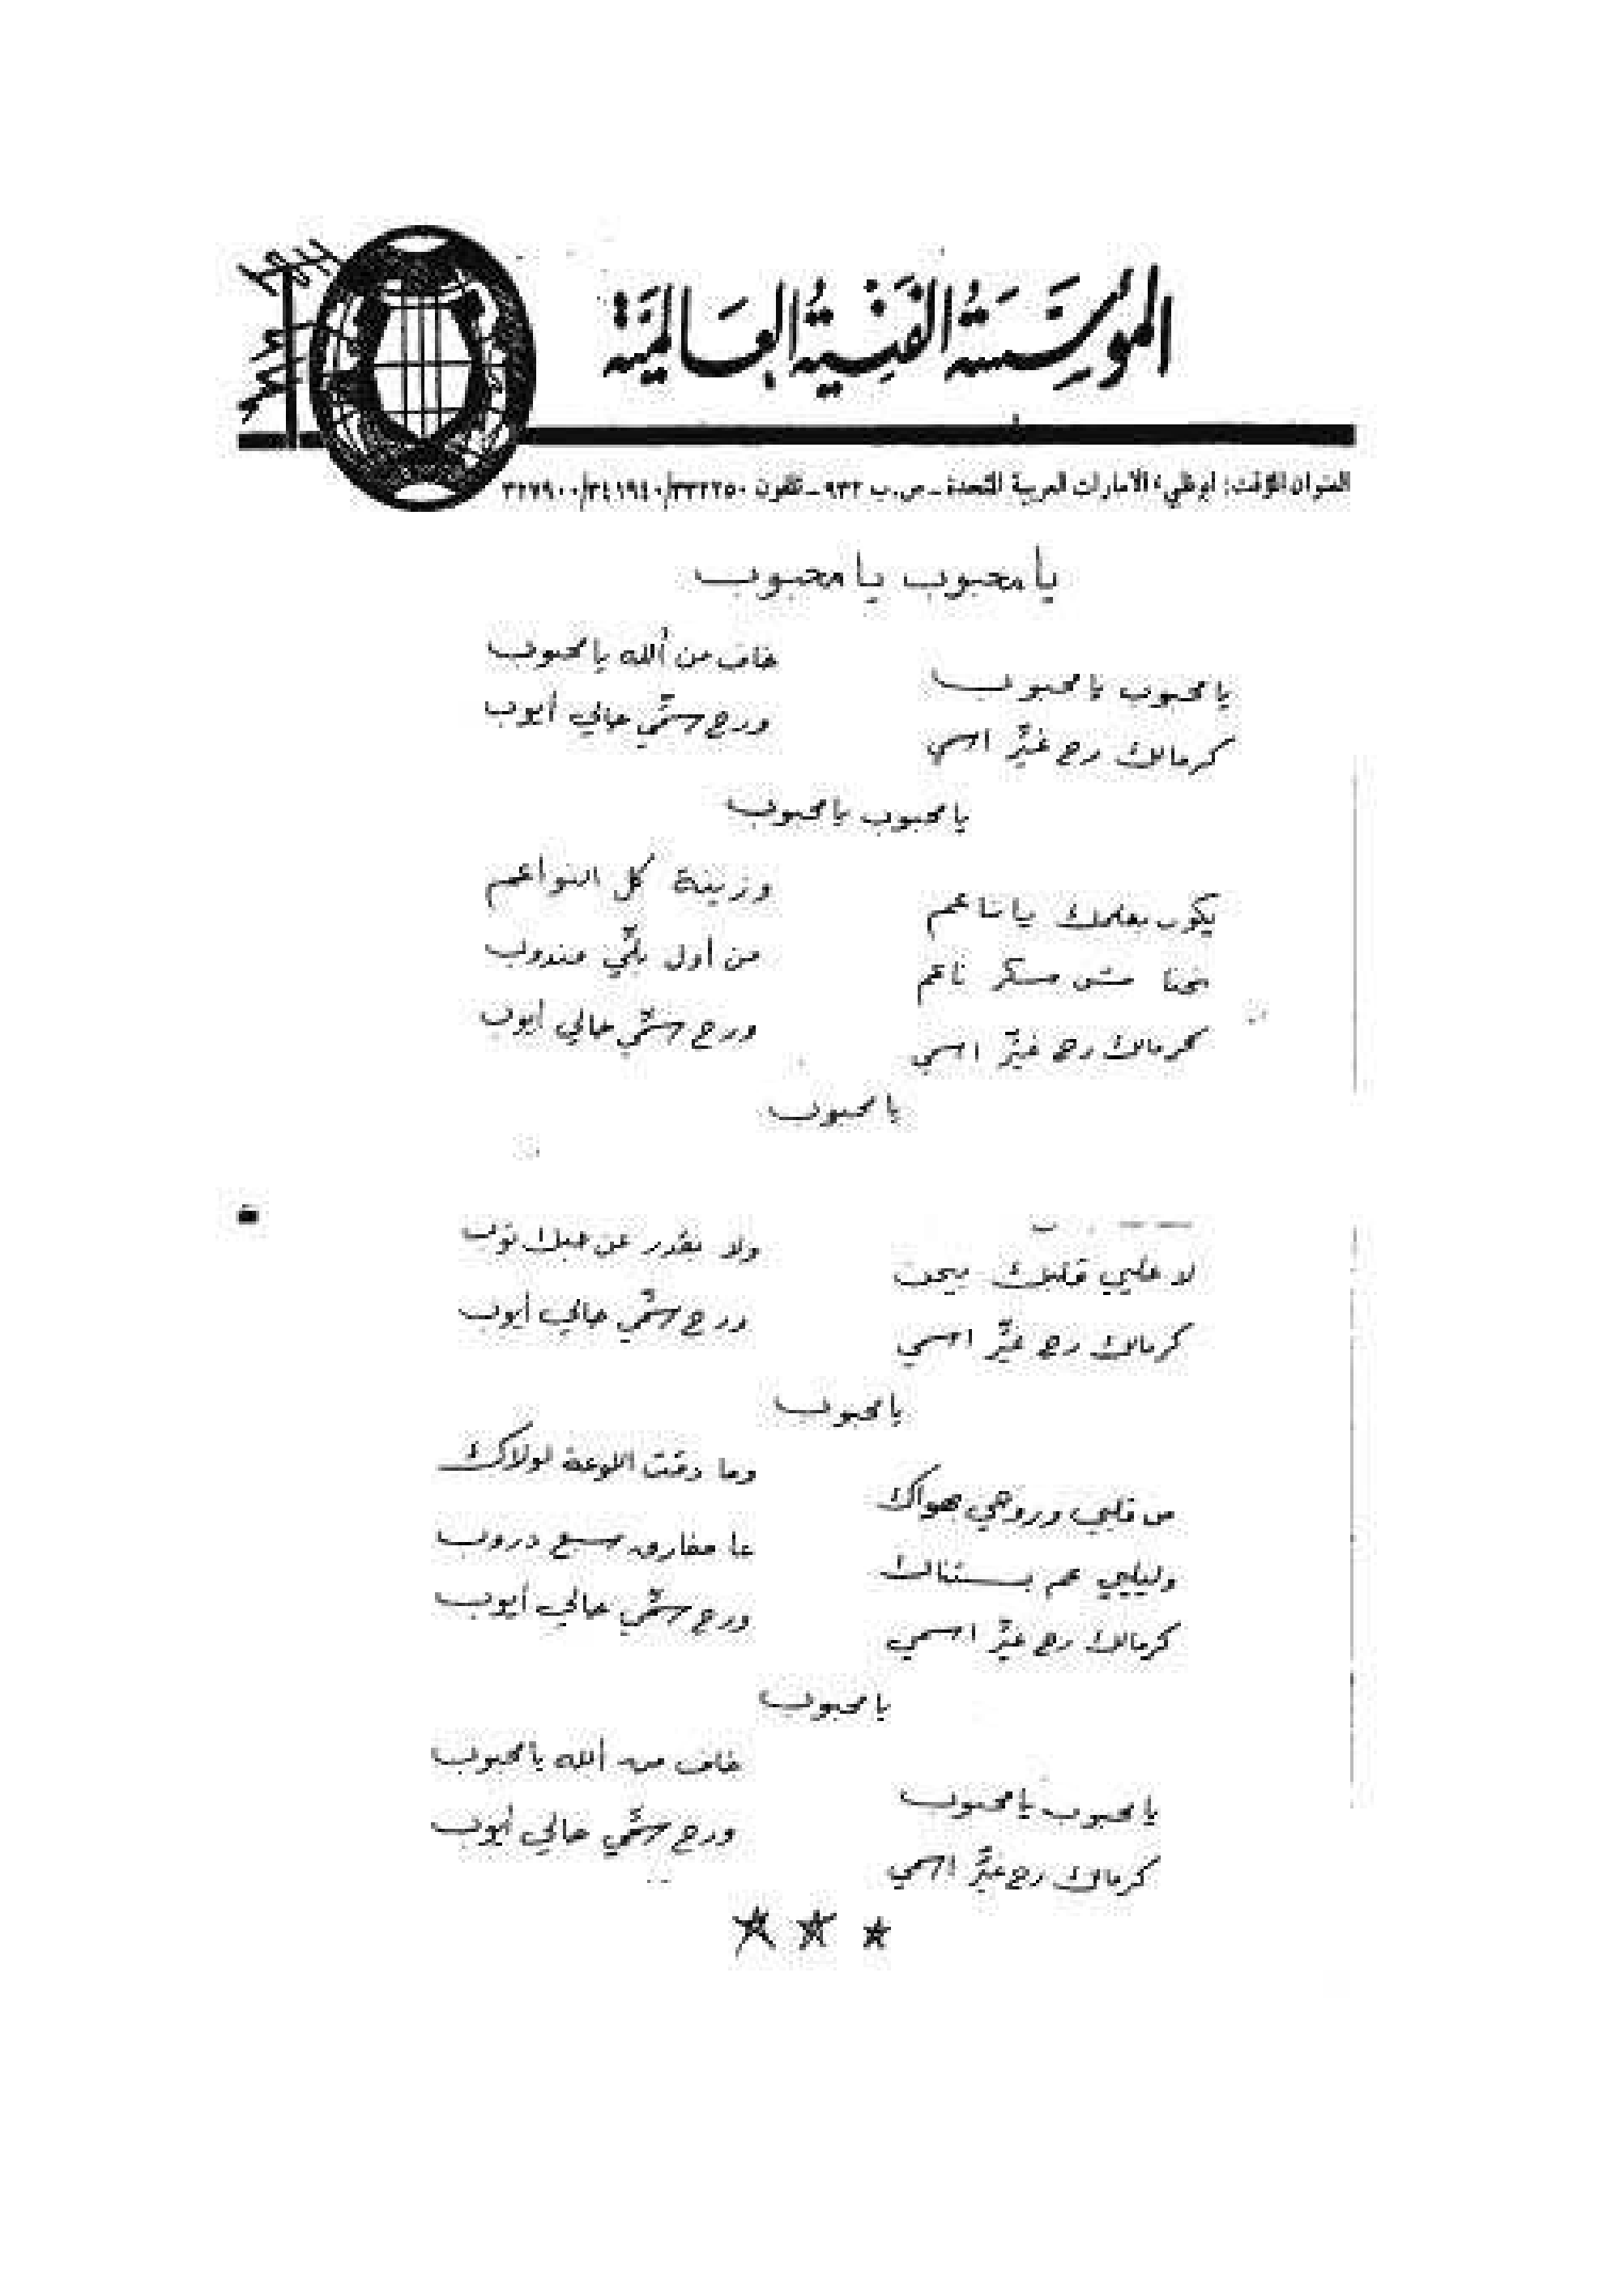 المؤسسة الفنية العالمية
العنوان المؤقت: ابوظبي، الامارات العربية المتحدة - ص.ب ٩٣٢ - تلفون ٣٣٢٢٥٠/٣٤١٩٤٠/٣٢٧٩٠٠
يا محبوب يا محبوب
يا محبوب يا محبوب
خاف من ألله يا محبوب
كرمالك رح غيّر اسمي
ورح سمّي حالي أيوب
يا محبوب يا محبوب
يكون بعلمك يا ناعم
وزينة كل النواعم
نحنا مش عسكر ناعم
من أول بكّي مندوب
كرمالك رح غيّر اسمي
ورح سمّي حالي أيوب
يا محبوب
ولا نقدر عن حبك نوب
لا خليي قلبك يحن
كرمالك رح غيّر اسمي
ورح سمّي حالي أيوب
يا محبوب
من قلبي وروحي بهواك
وما دقت اللوعة لولاك
وليليي عم بستناك
عا مفارق سبع دروب
كرمالك رح غيّر اسمي
ورح سمّي حالي أيوب
يا محبوب
يا محبوب يا محبوب
خاف من ألله يا محبوب
كرمالك رح غيّر اسمي
ورح سمّي حالي أيوب